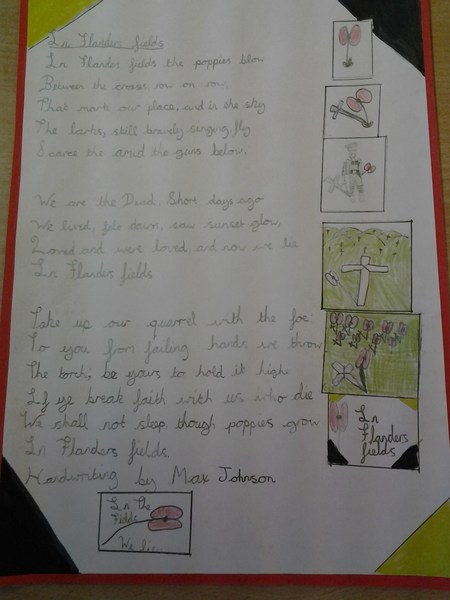 In Flanders fields
In Flander fields the poppies blow
Between the crosses, row on row,
That mark our place; and in the sky
The larks, still bravely singing, fly
Scarce the amid the guns below.
We are the Dead. Short days ago
We lived, felt dawn, saw sunset glow,
Loved and were loved, and now we lie
In Flanders fields
Take up our quarrel with the foe:
To you from failing hands we throw
The torch; be yours to hold it high.
If ye break faith with us who die
We shall not sleep, though poppies grow
In Flanders fields.
Handwriting by Max Johnson
In
Flanders
fields
In The
Fields
We